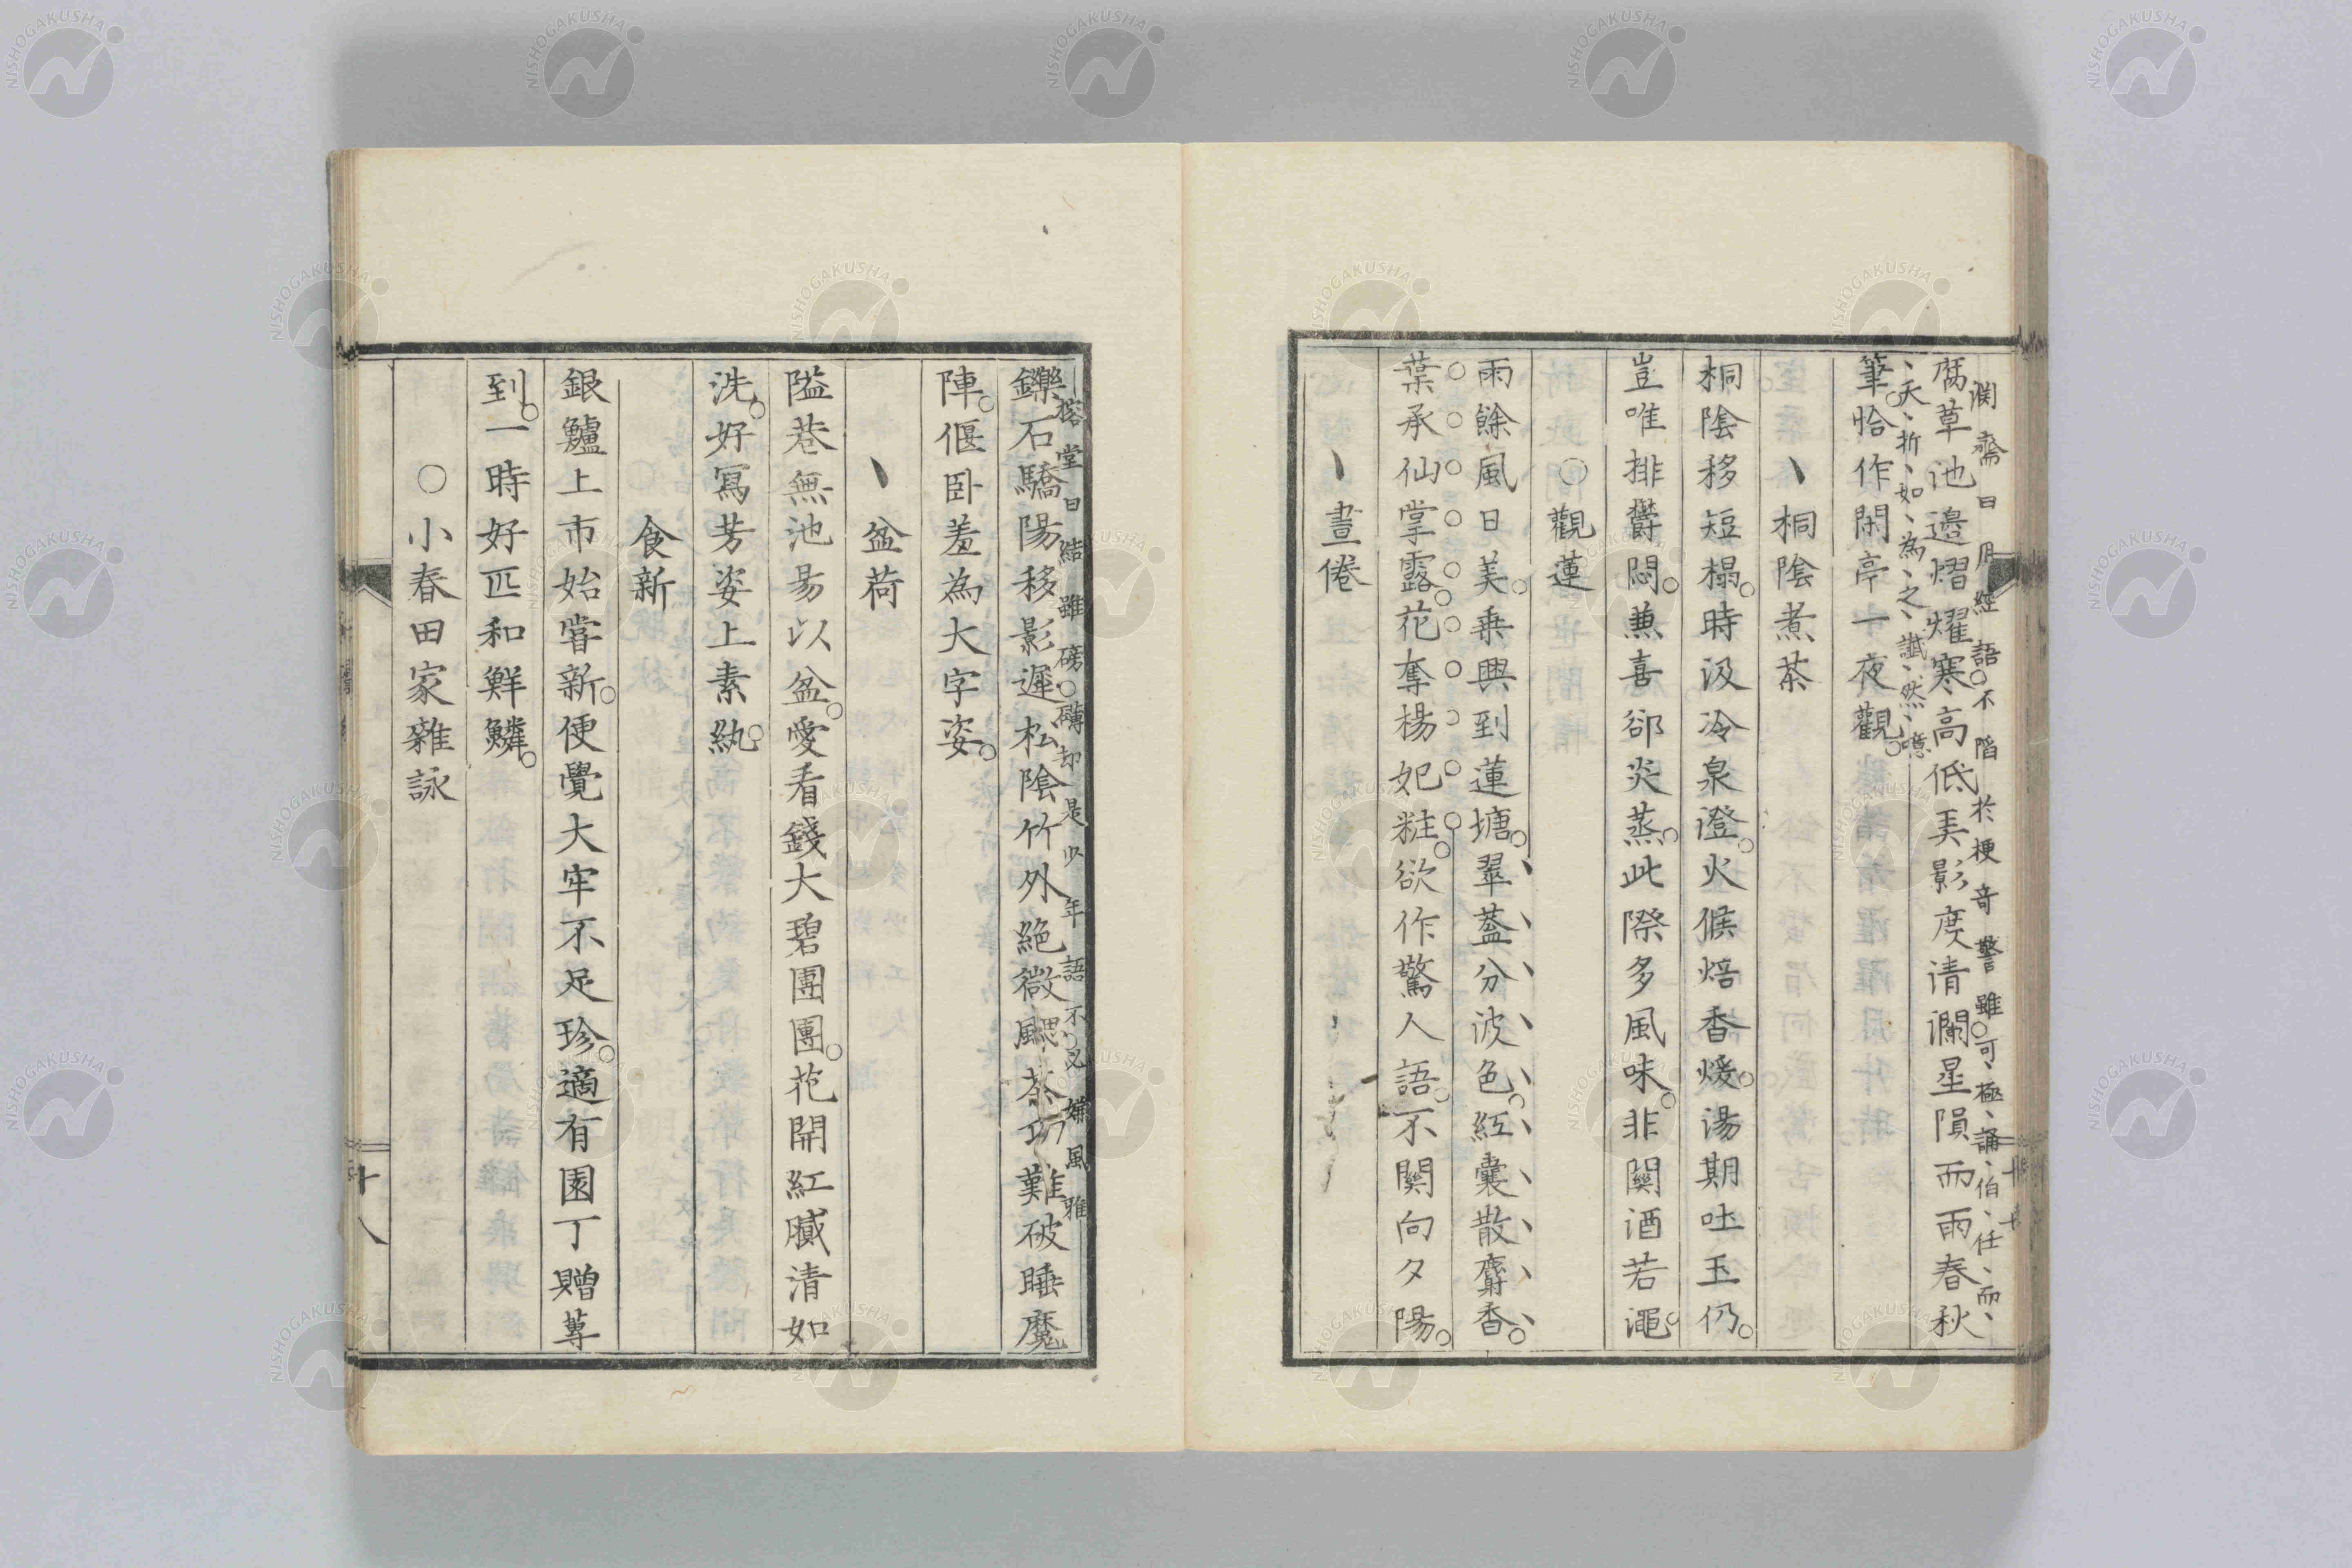 腐草池邉熠燿寒高低弄影度清瀾星隕而雨春秋
筆恰作閑亭一夜觀
桐陰煮茶
桐陰移短榻時汲冷泉澄火候焙香煖湯期吐玉仍
豈唯排欝悶兼喜郤炎蒸此際多風味非關酒若澠
○觀蓮
雨餘風日美乗興到蓮塘翠蓋分波色紅囊散麝香
葉承仙掌露花奪楊妃粧欲作驚人語不關向夕陽
晝倦
鑠石驕陽移影遲松陰竹外絶微颸茶功難破睡魔
陣偃卧羞為大字姿
盆荷
隘巷無池昜以盆愛看錢大碧團團花開紅膩清如
洗好冩芳姿上素紈
食新
銀鱸上市始甞新便覺大牢不足珍適有園丁贈蓴
到一時好匹和鮮鱗
○小春田家雜詠
瀾齋曰月經語不陷於梗竒警雖可極誦伯任而
天折如為之讖然噫
榕堂曰結雖磅礴却是少年語不必嫌風雅
十八
NISHOGAKUSHA